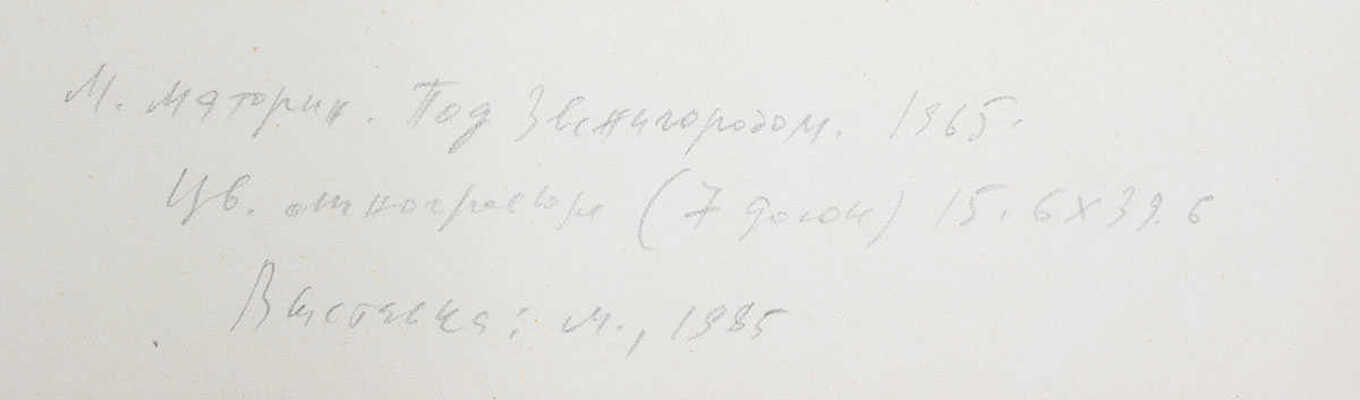 М. Маторин. Под Звенигородом. 1965.
Цв. линогравюра (7 досок) 15.6x39.6
Выставка: М., 1985